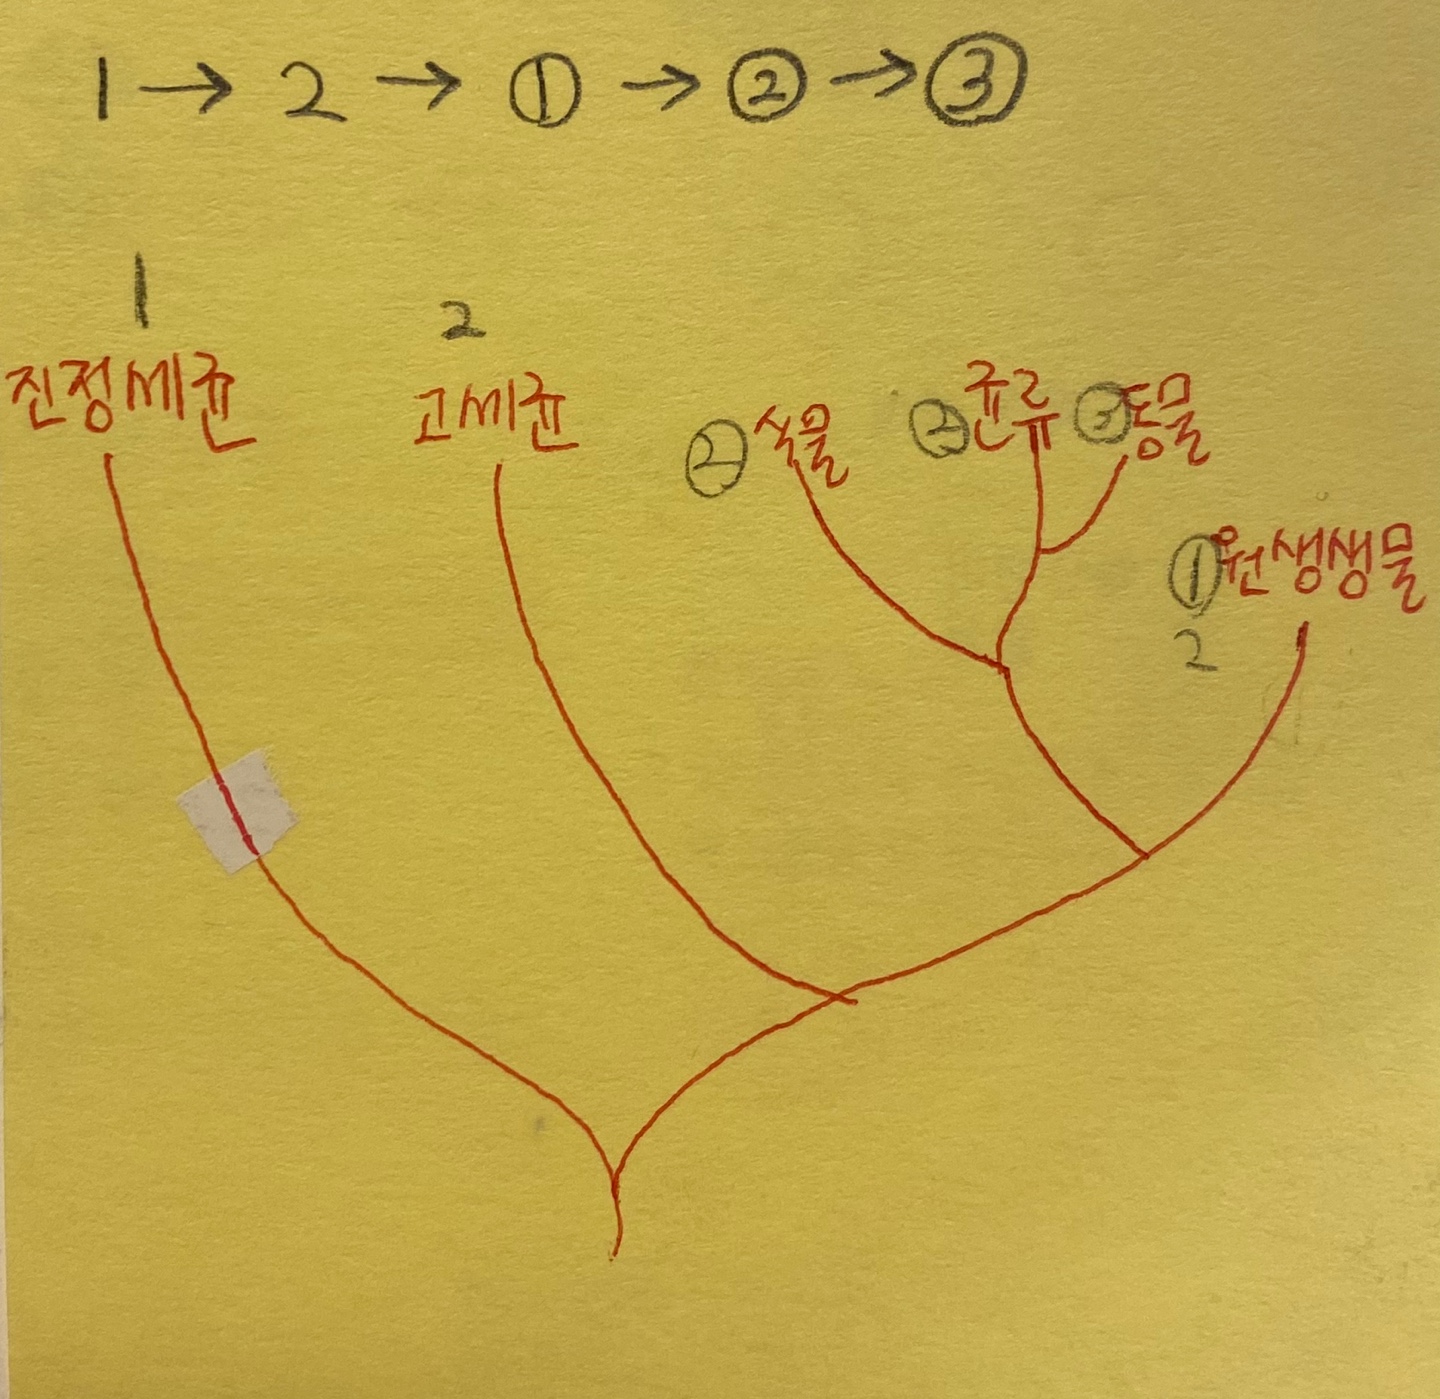 1 → 2 → ① → ② → ③
1
2
진정세균
고세균
② 식물
② 균류
③ 동물
① 원생생물
2